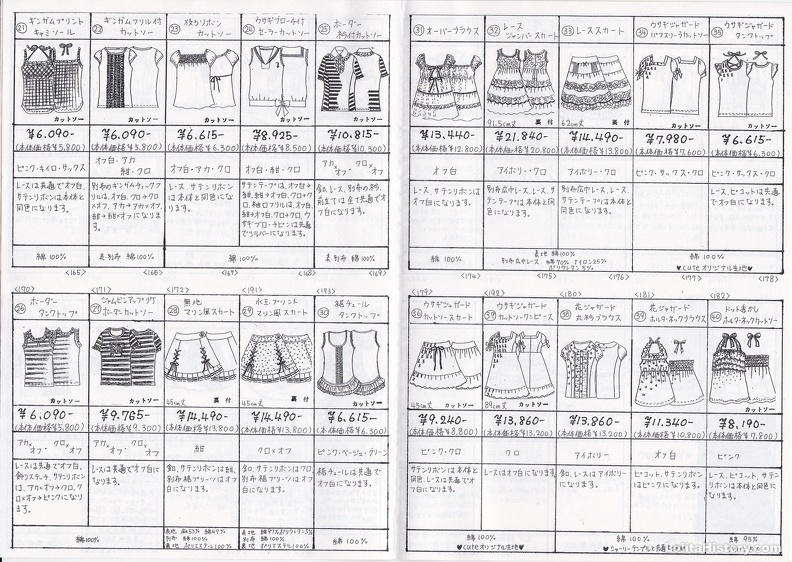 ㉑ ギンガムプリント
キャミソール
カットソー
¥6.090-
(本体価格¥5.800)
ピンク・キイロ・サックス
レースは共通でオフ白、
サテンリボンは本体と
同色になります。
㉒ ギンガムフリル付
カットソー
カットソー
¥6.090-
(本体価格¥5.800)
オフ白・アカ
紺・クロ
㉓ 衿ぐりリボン
カットソー
カットソー
¥6.615-
(本体価格¥6.300)
オフ白・アカ・クロ
レース、サテンリボン
は本体と同色になりま
す。
㉔ ウサギブローチ付
セーラーカットソー
カットソー
¥8.925-
(本体価格¥8.500)
オフ白・紺・クロ
㉕ ボーダー
衿付カットソー
カットソー
¥10.815-
(本体価格¥10.300)
アカ×オフ・クロ×オフ
綿 100%
表・別布 綿 100%
綿 100%
表・別布 綿 100%
<165>
<166>
<167>
<168>
<169>
㉛ オーバーブラウス
¥13.440-
(本体価格¥12.800)
オフ白
レース、サテンリボンは
オフ白になります。
㉜ レース
ジャンパースカート
91.5cm丈 裏付
¥21.840-
(本体価格¥20.800)
アイボリー・クロ
別布広巾レース、レース、サ
テンテープは本体と同
色になります。
㉝ レーススカート
62cm丈 裏付
¥14.490-
(本体価格¥13.800)
アイボリー・クロ
別布広巾レース、レース、
サテンテープは本体と同
色になります。
㉞ ウサギジャガード
パフスリーブカットソー
カットソー
¥7.980-
(本体価格¥7.600)
ピンク・サックス・クロ
㉟ ウサギジャガード
タンクトップ
カットソー
¥6.615-
(本体価格¥6.300)
ピンク・サックス・クロ
レース、ピコットは共通
でオフ白になります。
綿 100%
表地 綿 100%
別布広巾レース 綿 70% ナイロン25%
ポリウレタン 5%
綿 100%
♥cuteオリジナル生地♥
<174>
<175>
<176>
<177>
<178>
<170>
㉖ ボーダー
タンクトップ
カットソー
¥6.090-
(本体価格¥5.800)
アカ×オフ・クロ×オフ
レースは共通でオフ白、
飾りステッチ、サテンリボン
は、アカ×オフ→クロ、ク
ロ×オフ→ピンクになりま
す。
<171>
㉗ ジャムビンアップリケ
ボーダーカットソー
カットソー
¥9.765-
(本体価格¥9.300)
アカ×オフ・クロ×オフ
レースは共通でオフ白に
なります。
<172>
㉘ 無地
マリン風スカート
45cm丈 裏付
¥14.490-
(本体価格¥13.800)
紺
釦、サテンリボンは紺、
別布裾プリーツはオフ
白になります。
<191>
㉙ 水玉プリント
マリン風スカート
45cm丈 裏付
¥14.490-
(本体価格¥13.800)
クロ×オフ
釦、サテンリボンはクロ、
別布裾プリーツはオフ
白になります。
<193>
㉚ 裾チュール
タンクトップ
カットソー
¥6.615-
(本体価格¥6.300)
ピンク・ベージュ・グリーン
裾チュールは共通で
オフ白になります。
綿 100%
別布 綿 100%
裏地 ポリエステル 100%
別布 綿 100%
裏地 ポリエステル 100%
綿 100%
<179>
㊱ ウサギジャガード
カットソースカート
45cm丈 カットソー
¥9.240-
(本体価格¥8.800)
ピンク・クロ
サテンリボンは本体と
同色、レースは共通でオ
フ白になります。
<192>
㊲ ウサギジャガード
カットソーワンピース
89cm丈 カットソー
¥13.860-
(本体価格¥13.200)
クロ
レースはオフ白になります。
<180>
㊳ 花ジャガード
丸衿ブラウス
¥13.860-
(本体価格¥13.200)
アイボリー
釦、レースはアイボリー
になります。
<181>
㊴ 花ジャガード
ホルターネックブラウス
¥11.340-
(本体価格¥10.800)
オフ白
ピコット、サテンリボン
はピンクになります。
<182>
㊵ ドット透かし
ホルターネックカットソー
カットソー
¥8.190-
(本体価格¥7.800)
ピンク
レース、ピコット、サテン
リボンは本体と同色に
なります。
綿 100%
♥cuteオリジナル生地♥
綿 100%
綿 95%
LolitaHistory.com